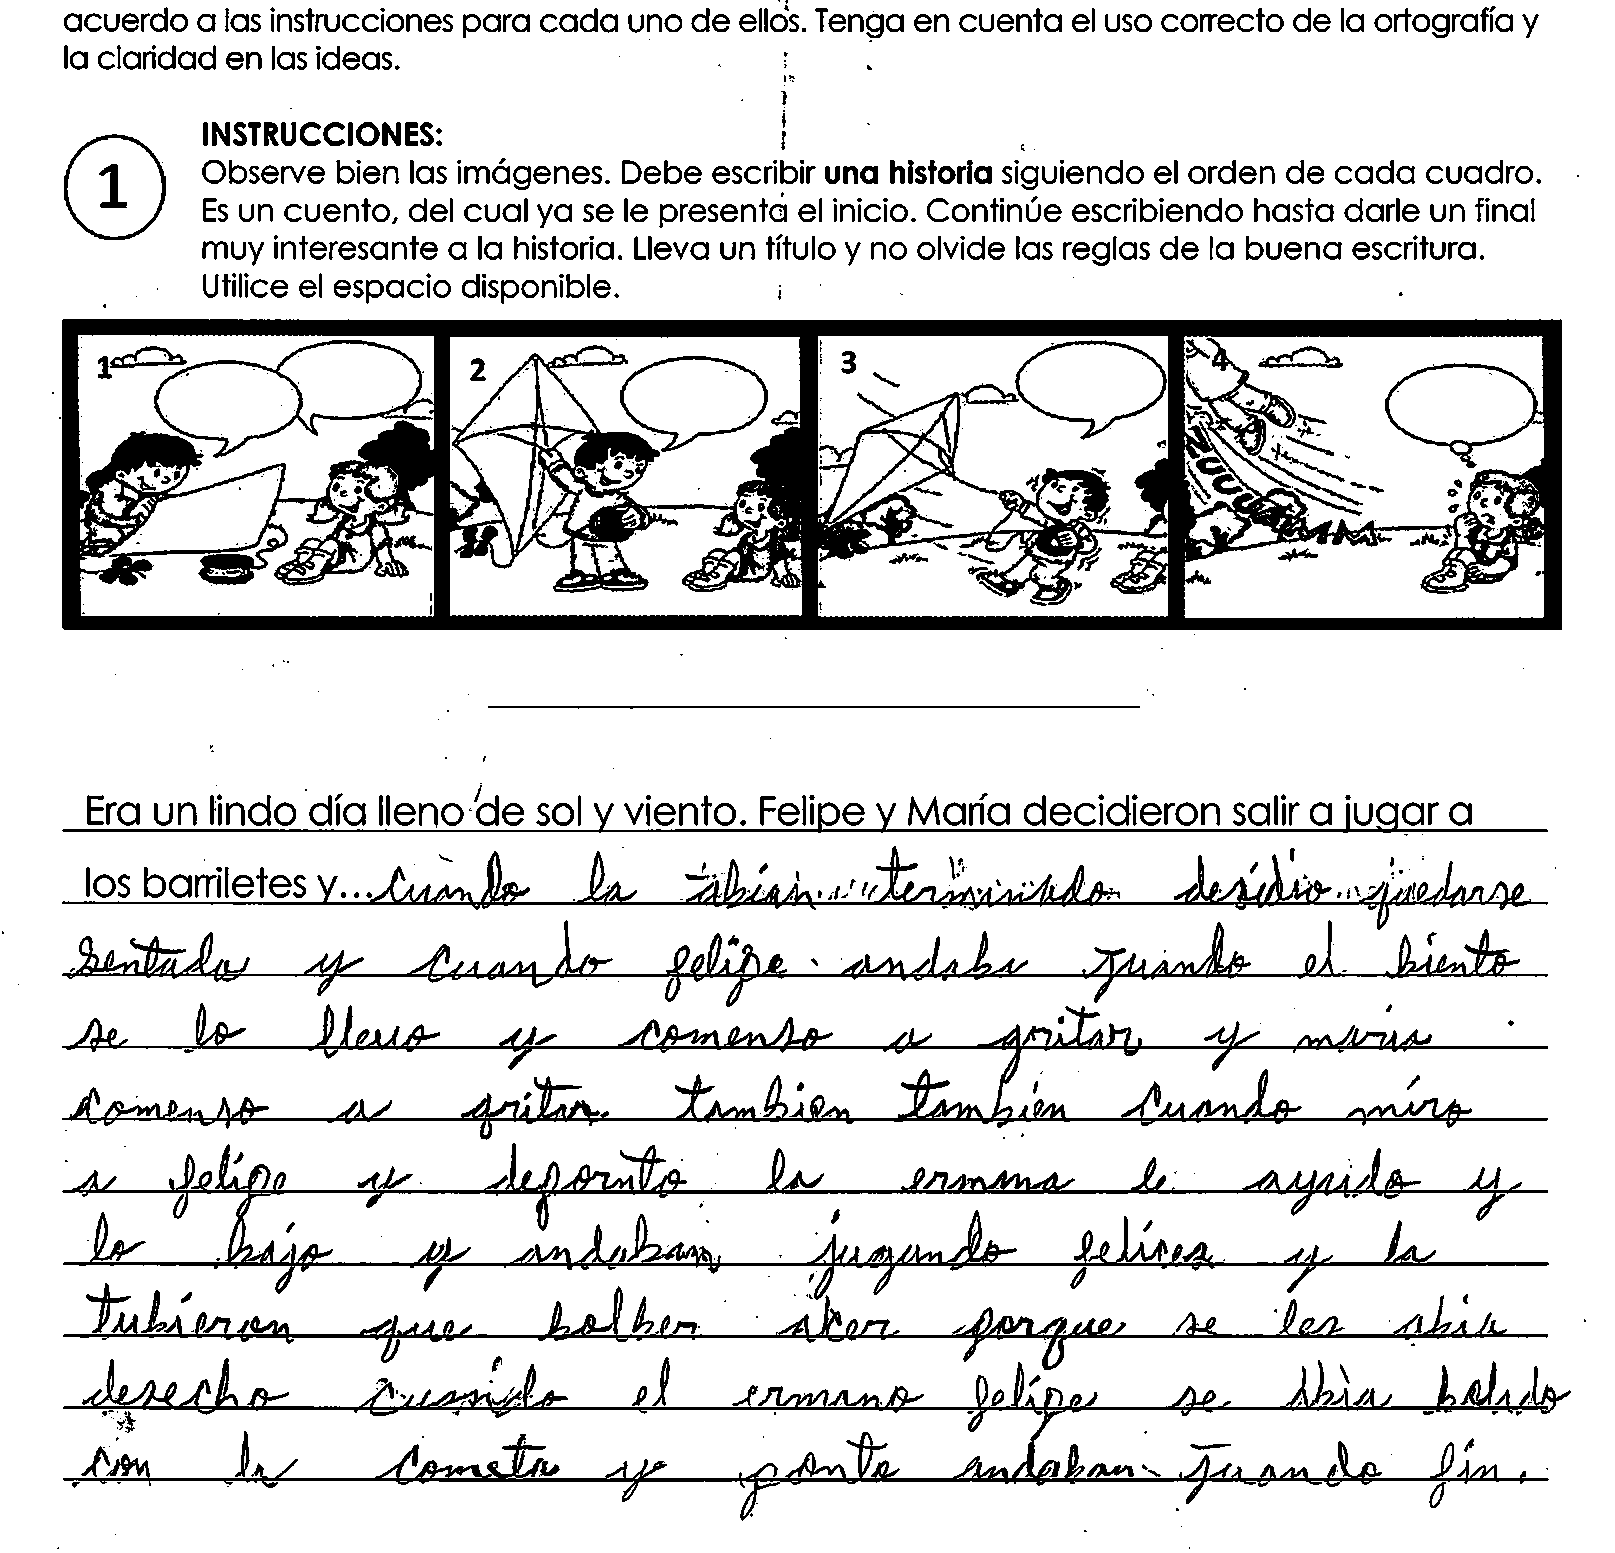 acuerdo a las instrucciones para cada uno de ellos. Tenga en cuenta el uso correcto de la ortografía y
la claridad en las ideas.
1
INSTRUCCIONES:
Observe bien las imágenes. Debe escribir una historia siguiendo el orden de cada cuadro.
Es un cuento, del cual ya se le presenta el inicio. Continúe escribiendo hasta darle un final
muy interesante a la historia. Lleva un título y no olvide las reglas de la buena escritura.
Utilice el espacio disponible.
1 2 3 4
Era un lindo día lleno de sol y viento. Felipe y María decidieron salir a jugar a
los barriletes y...cuando la abian terminado desidio quedarse
sentada y cuando felipe andaba juando el biento
se lo lleuo y comenso a gritar y maria
comenso a gritar tambien tambien cuando miro
a felipe y depornto la ermana le ayudo y
lo bajo y andaban jugando felices y la
tubieron que bolber aker porque se les abia
desecho cuando el ermano felipe se abia bolado
con la cometa y ponto andaban juando fin.